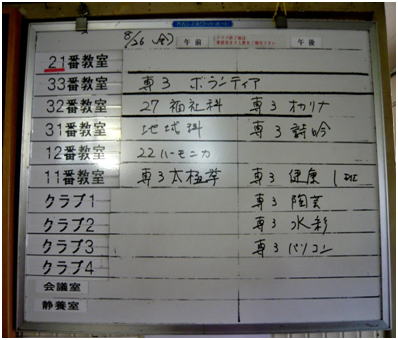 8/26 (金) 午前 午後
21番教室
33番教室 専3 ボランティア
32番教室 27 福祉科 専3 オカリナ
31番教室 地域科 専3 詩吟
12番教室 22ハーモニカ
11番教室 専3太極拳 専3 健康 1班
クラブ1 専3 陶芸
クラブ2 専3 水彩
クラブ3 専3 パソコン
クラブ4
会議室
静養室